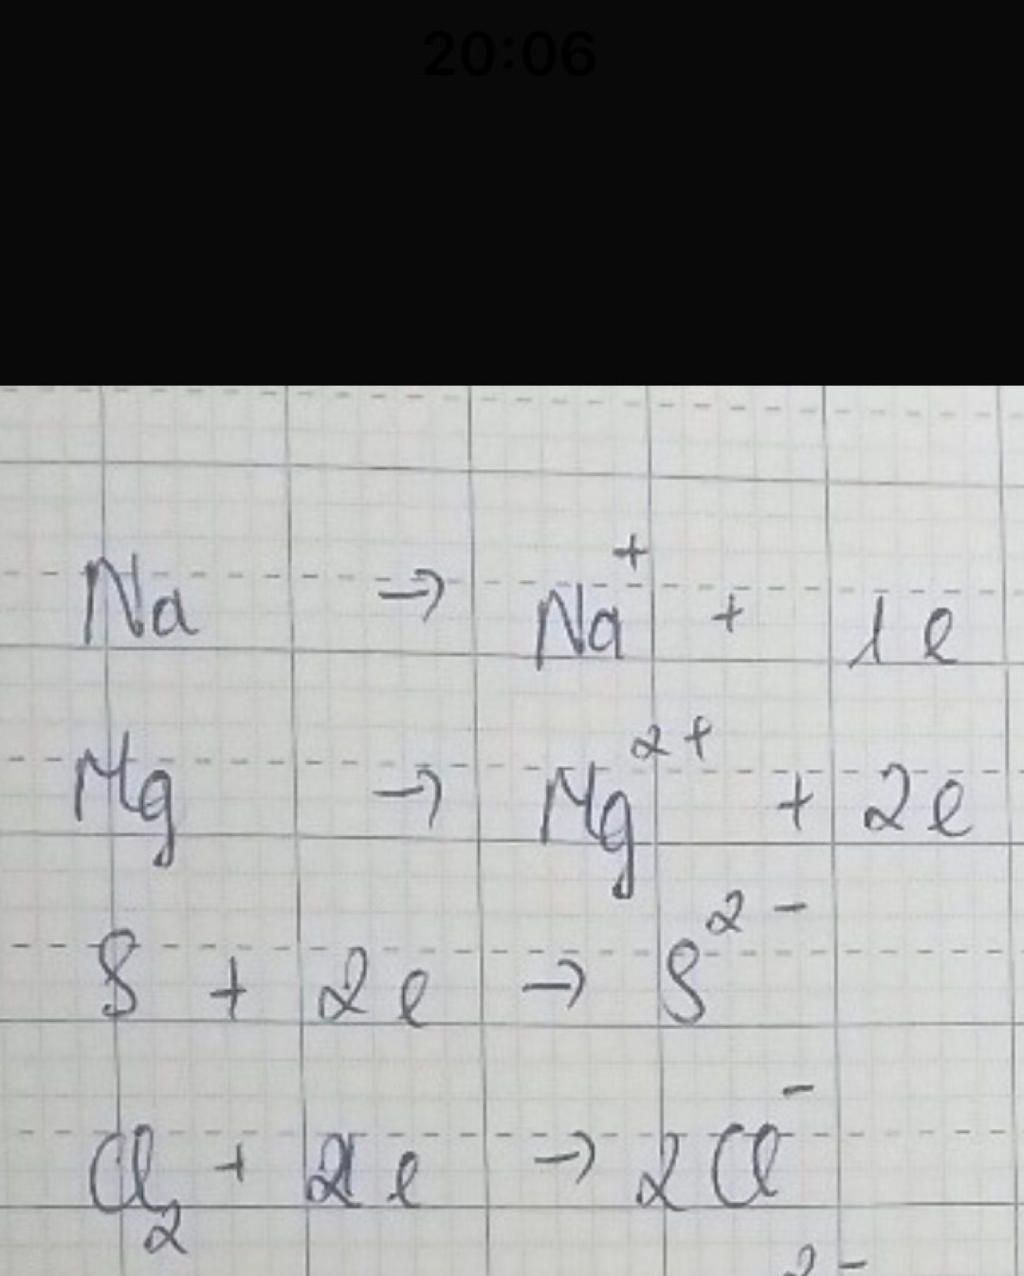 20:06
Na → Na⁺ + 1e
Mg → Mg²⁺ + 2e
S + 2e → S²⁻
Cl₂ + 2e → 2Cl⁻
2-